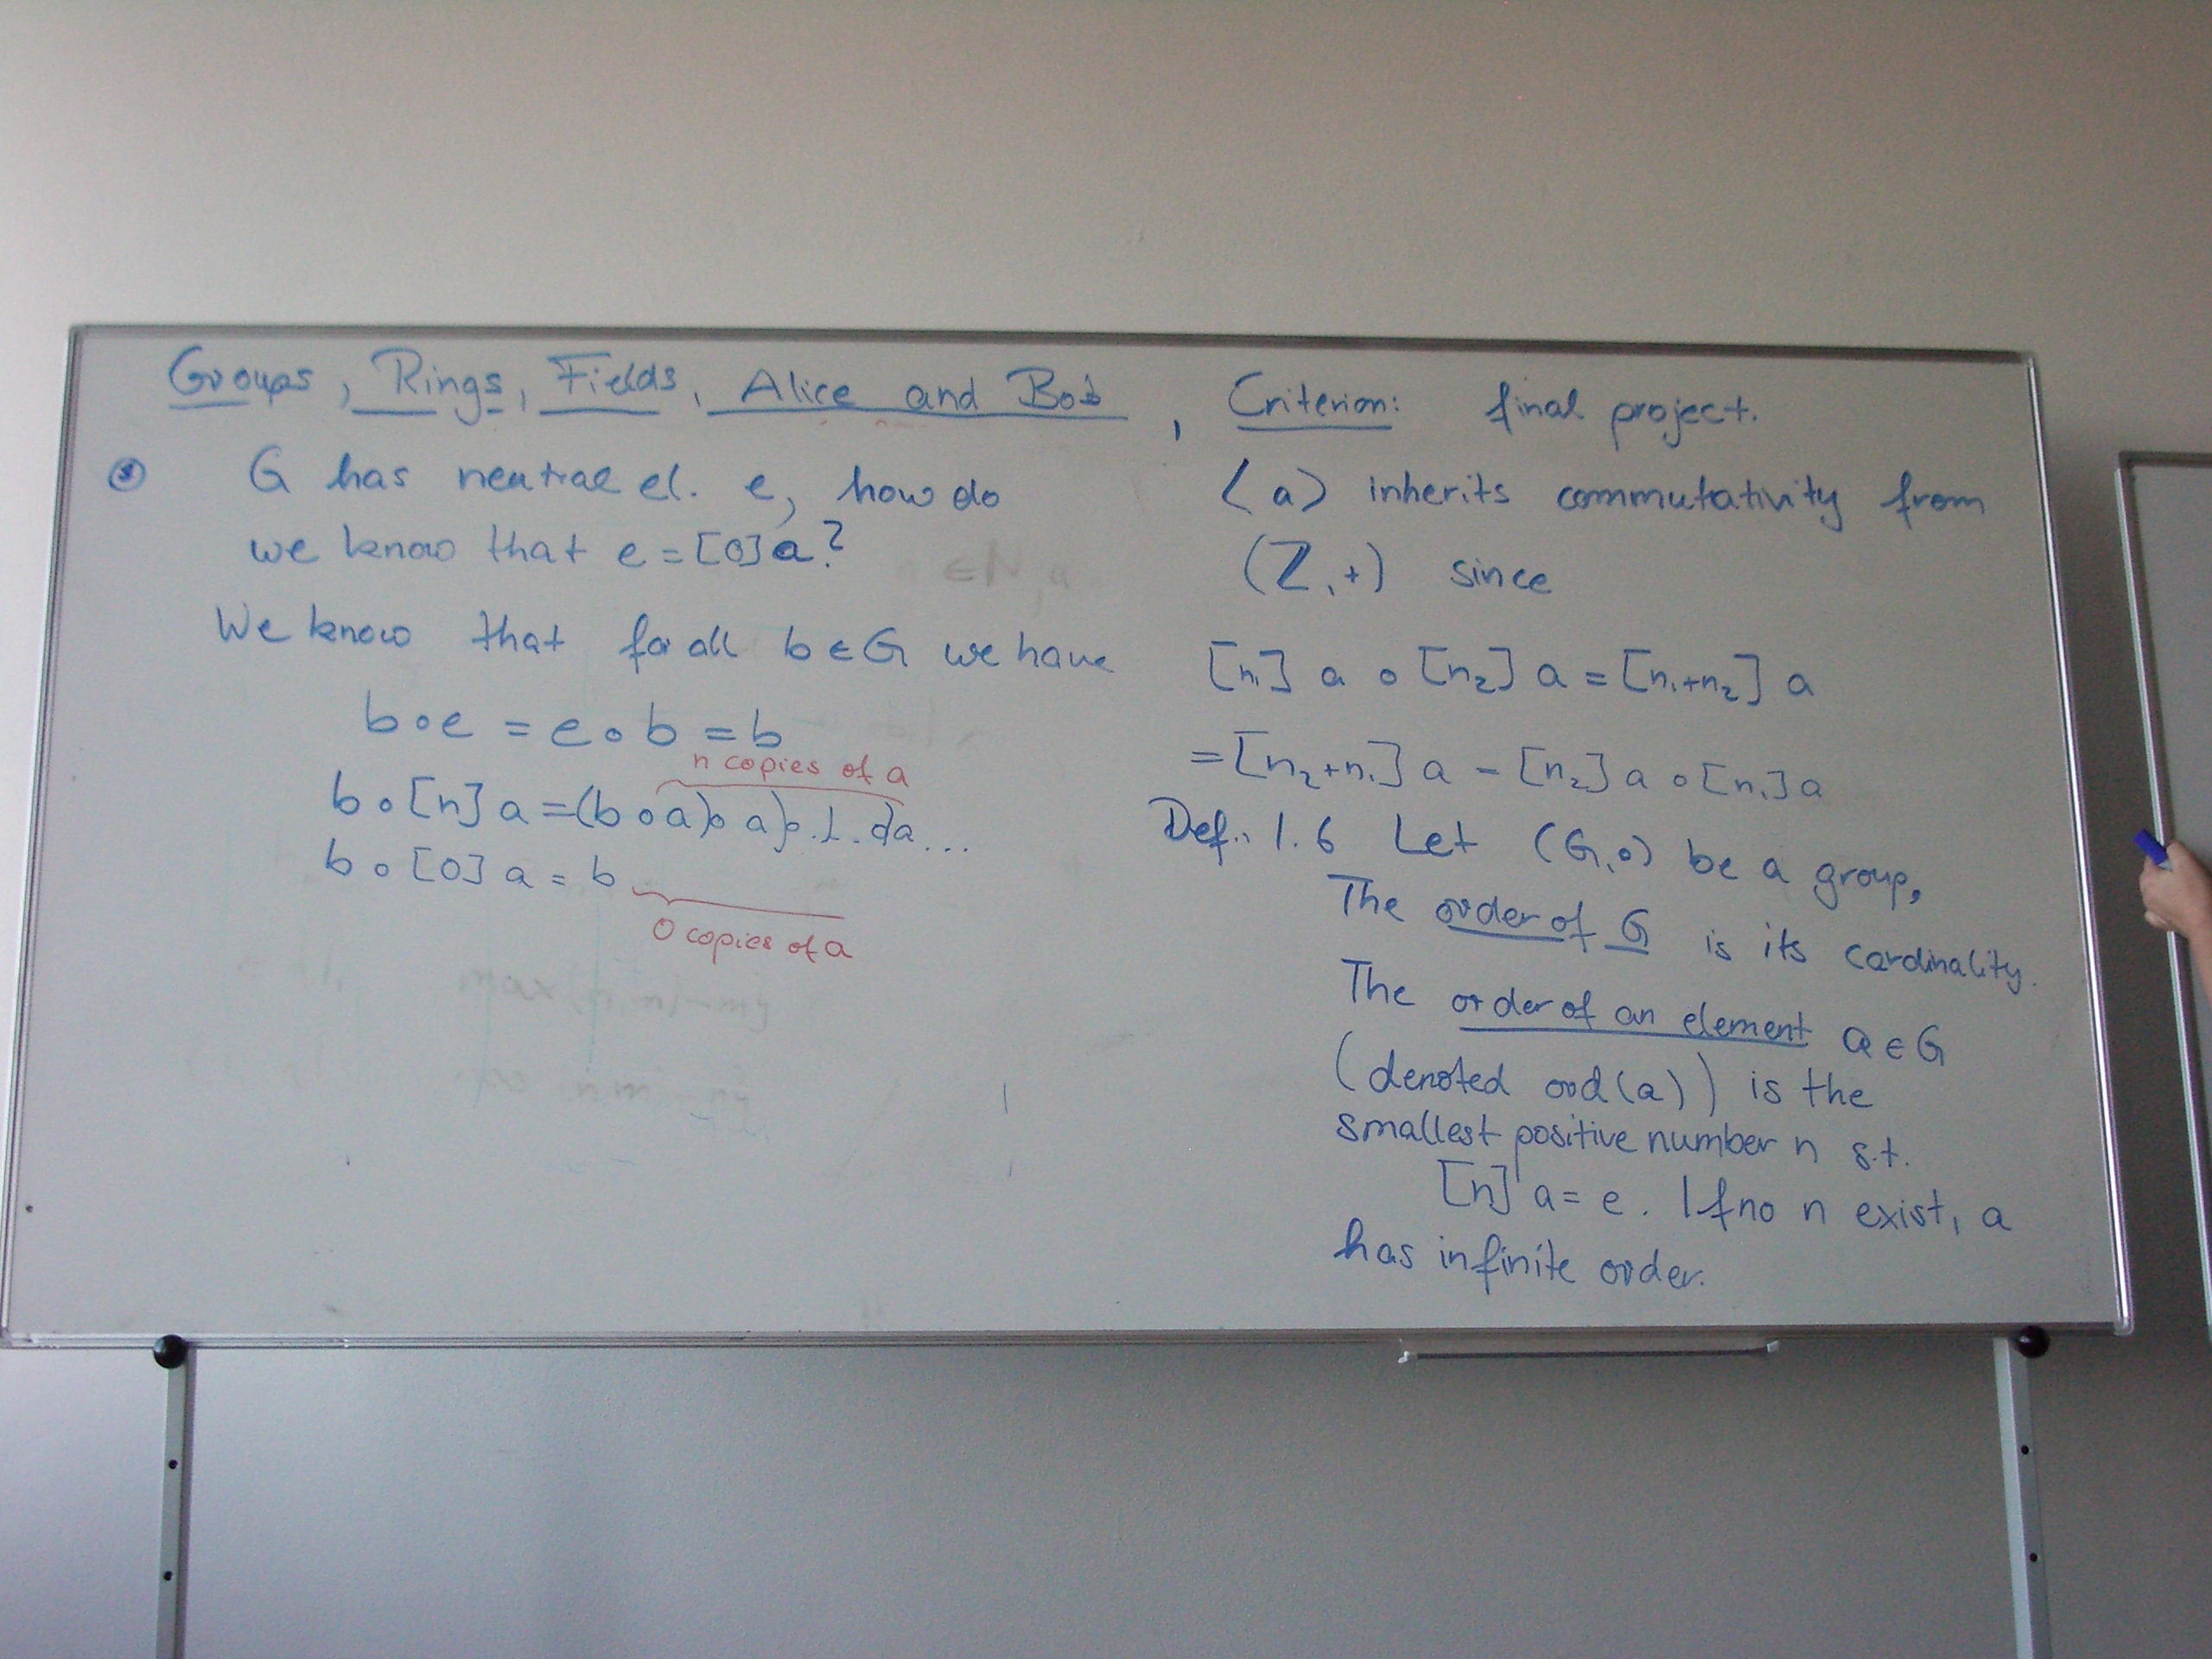 Groups, Rings, Fields, Alice and Bob, Criterion: final project.
G has neutral el. e, how do
we know that e = [0]a?
We know that for all b ∈ G we have
b∘e = e∘b = b
n copies of a
b∘[n]a = (b∘a)∘a)∘...∘a...
b∘[0]a = b
0 copies of a
⟨a⟩ inherits commutativity from
(Z,+) since
[n₁]a ∘ [n₂]a = [n₁+n₂]a
= [n₂+n₁]a = [n₂]a ∘ [n₁]a
Def. 1.6 Let (G,∘) be a group,
The order of G is its cardinality.
The order of an element a ∈ G
(denoted ord(a)) is the
smallest positive number n s.t.
[n]a = e. If no n exist, a
has infinite order.